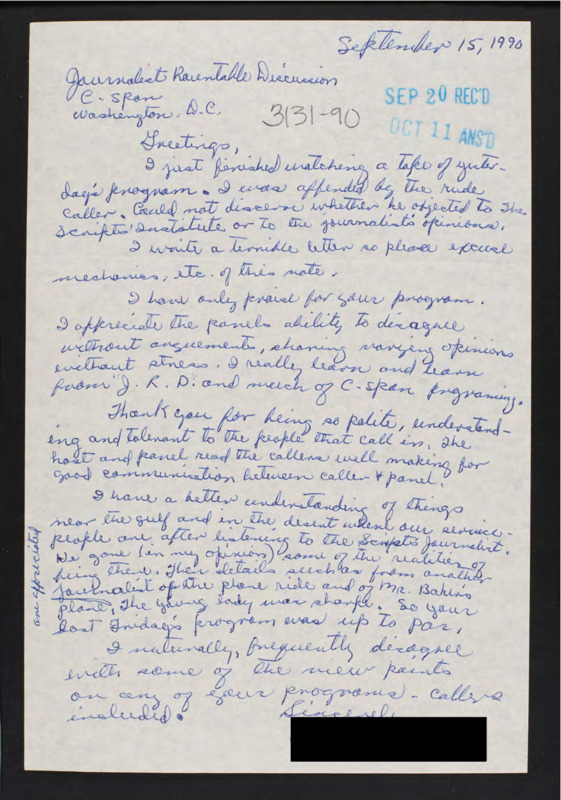 September 15, 1990
Journalist Rountable Discussion
C-Span
Washington, D.C.
3131-90
SEP 20 REC'D
OCT 11 ANS'D
Greetings,
I just finished watching a tape of yester-
day's program. I was offended by the rude
caller. Could not discern whether he objected to the
Scripts Institute or to the journalist's opinions.
I write a terrible letter so please excuse
mechanics, etc. of this note.
I have only praise for your program.
I appreciate the panels ability to disagree
without arguements, sharing varying opinions
without stress. I really learn and learn
from "J. R. D." and much of C-Span programing.
Thank you for being so polite, understand-
ing and tolerant to the people that call in. The
host and panel read the callers well making for
good communication between caller & panel.
I have a better understanding of things
near the gulf and in the desert where our service-
people are, after listening to the Scripts Journalist.
He gave (in my opinion) some of the realities of
being there. Their details such as from another
journalist of the plane ride and of Mr. Bakers
plane,
are appreciated
The young lady was sharp. So your
last Friday's program was up to par.
I naturally, frequently disagree
with some of the view points
on any of your programs - callers
included.